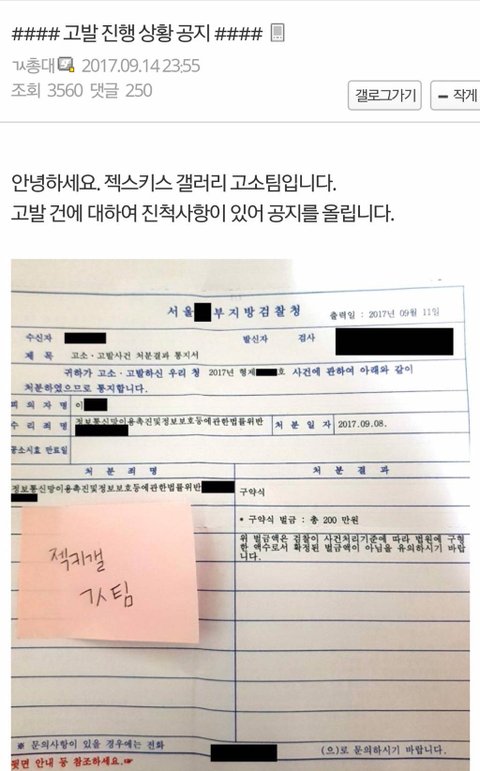 #### 고발 진행 상황 공지 ####
ㄱㅅ총대 2017.09.14 23:55
조회 3560 댓글 250
갤로그가기
작게
안녕하세요. 젝스키스 갤러리 고소팀입니다.
고발 건에 대하여 진척사항이 있어 공지를 올립니다.
서울 부지방검찰청
출력일 : 2017년 09월 11일
수신자 발신자 검사
제 목 고소·고발사건 처분결과 통지서
귀하가 고소·고발하신 우리 청 2017년 형제 호 사건에 관하여 아래와 같이
처분하였으므로 통지합니다.
피의자명 이
수리죄명 정보통신망이용촉진및정보보호등에관한법률위반 처분일자 2017.09.08.
공소시효 만료일
처분죄명 처분결과
정보통신망이용촉진및정보보호등에관한법률위반 구약식
* 구약식 벌금 : 총 200 만원
위 벌금액은 검찰이 사건처리기준에 따라 법원에 구형
한 액수로서 확정된 벌금액이 아님을 유의하시기 바랍
니다.
젝키갤
ㄱㅅ팀
※ 문의사항이 있을 경우에는 전화 (으)로 문의하시기 바랍니다.
뒷면 안내 등 참조하세요.☞